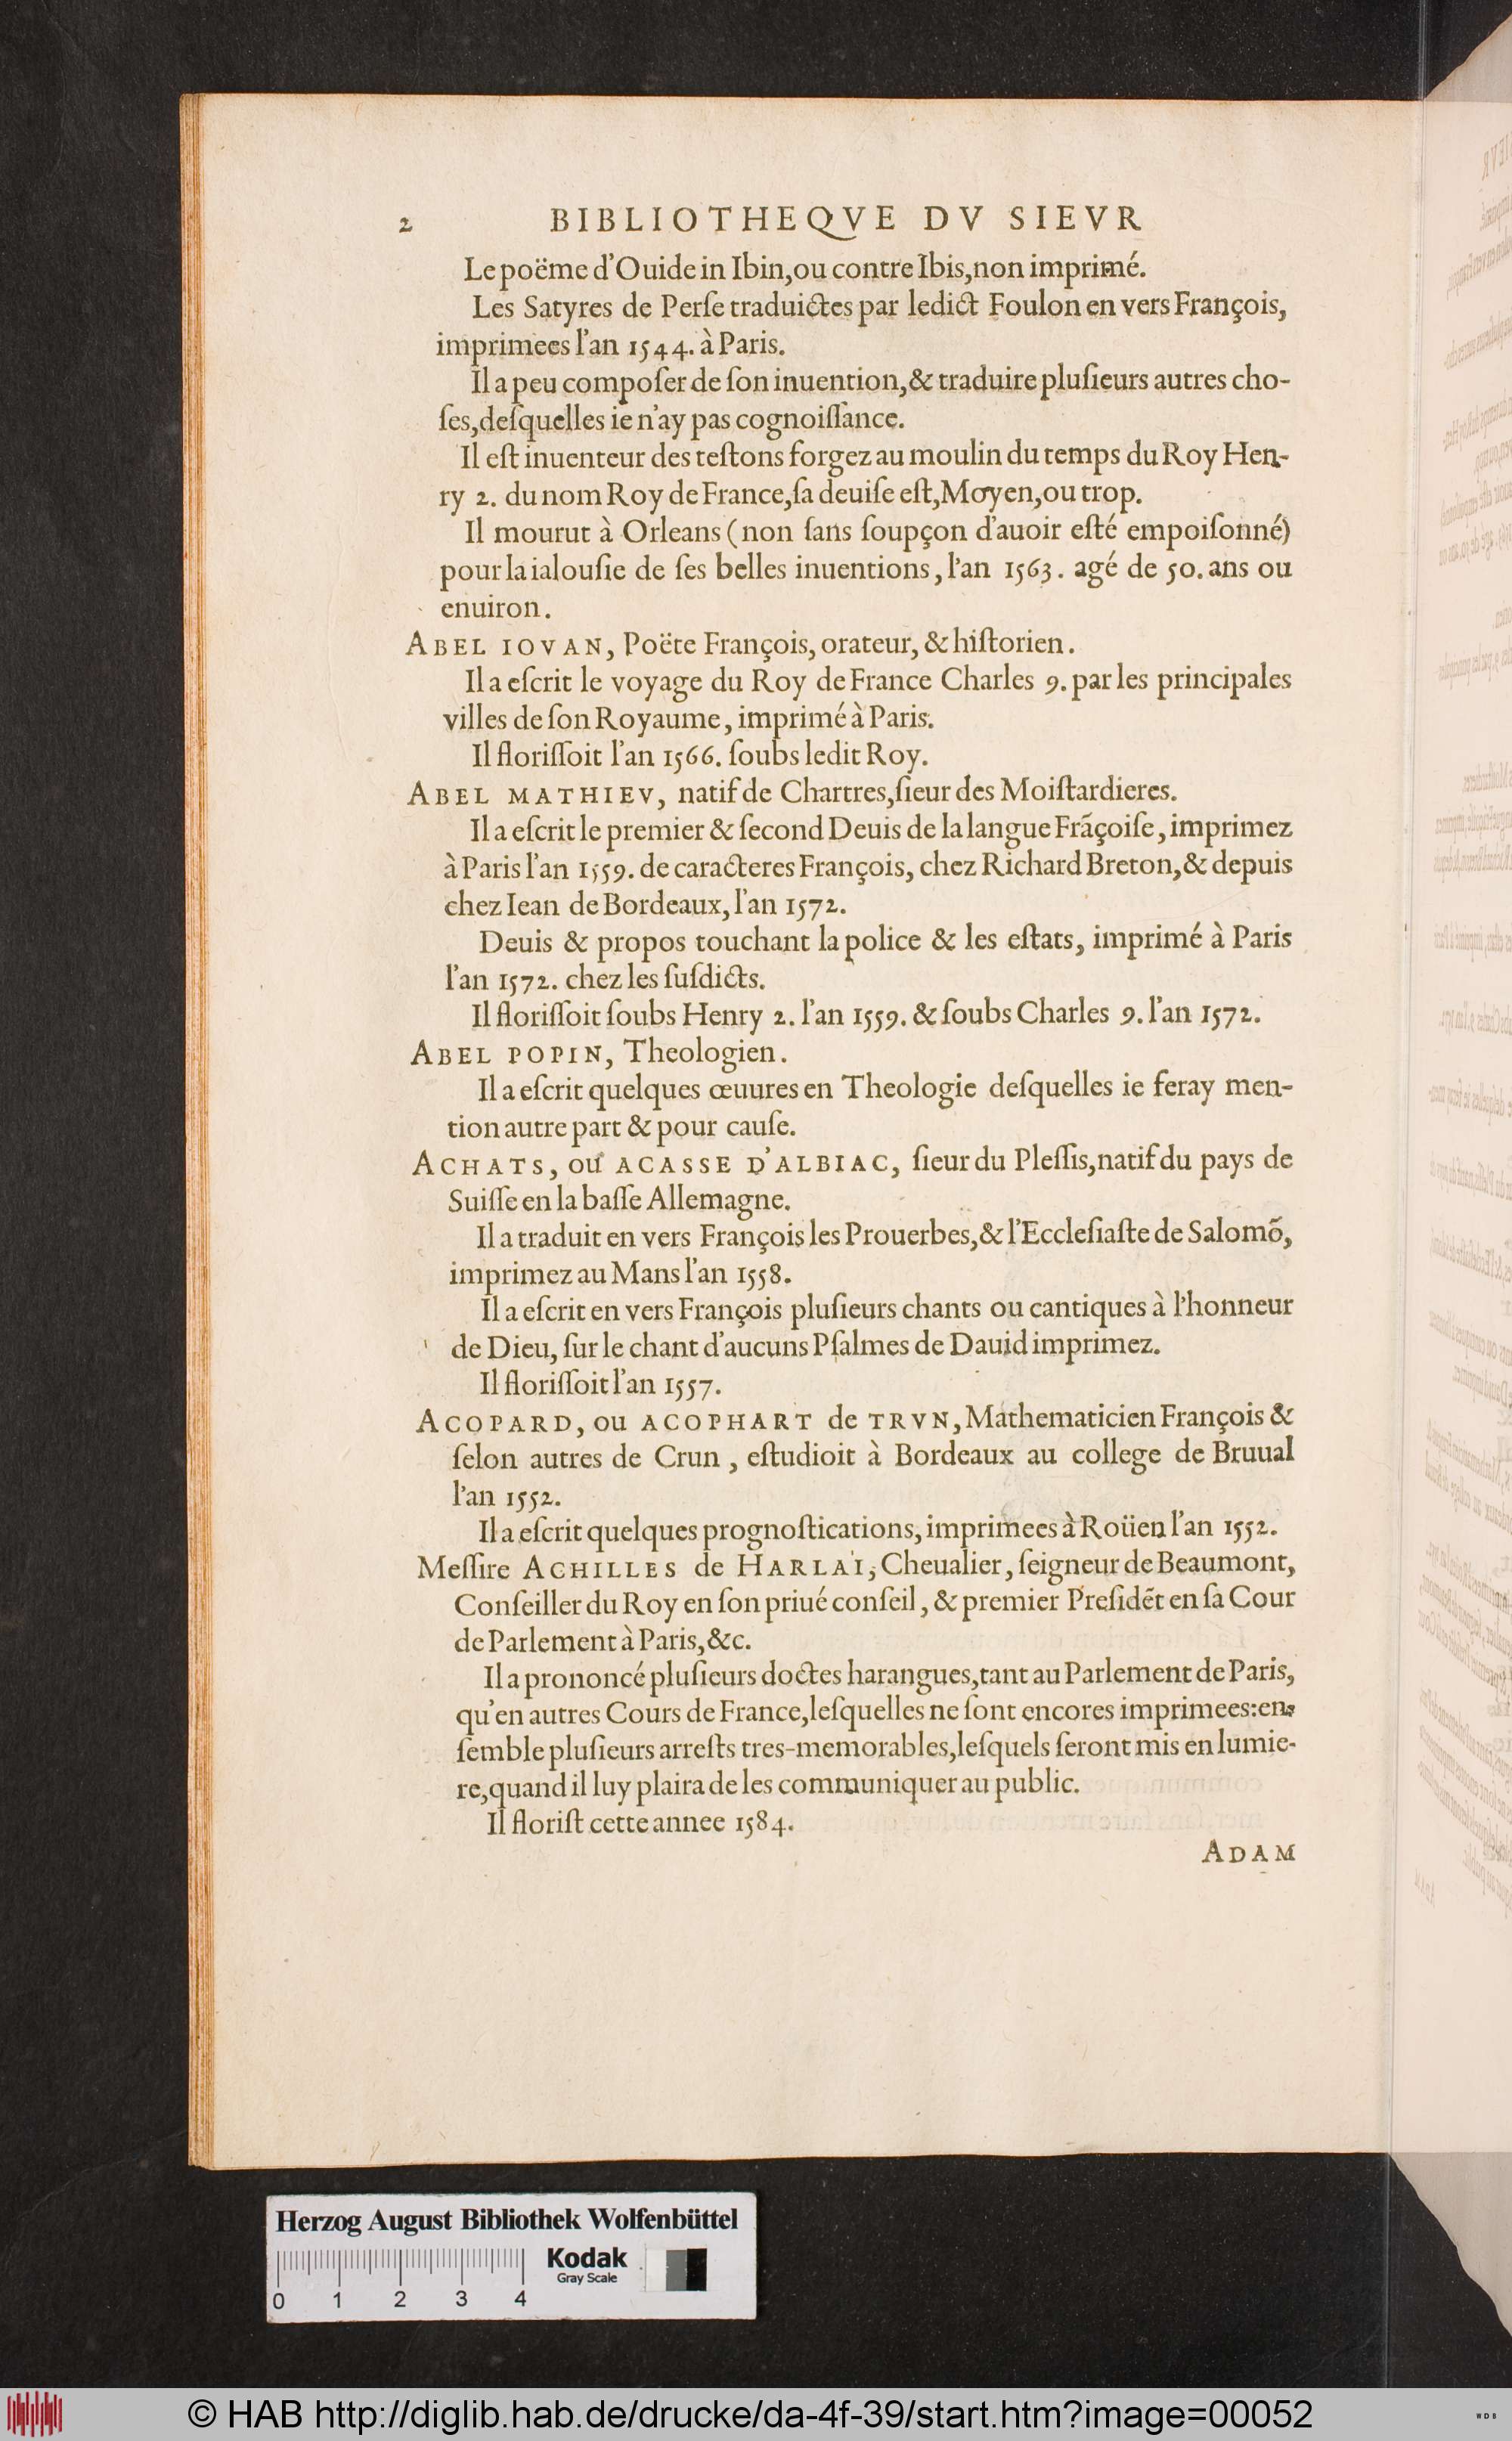 2 BIBLIOTHEQVE DV SIEVR
Le poëme d'Ouide in Ibin, ou contre Ibis, non imprimé.
Les Satyres de Perſe traduictes par ledict Foulon en vers François,
imprimees l'an 1544. à Paris.
Il a peu compoſer de ſon inuention, & traduire pluſieurs autres cho-
ſes, deſquelles ie n'ay pas cognoiſſance.
Il eſt inuenteur des teſtons forgez au moulin du temps du Roy Hen-
ry 2. du nom Roy de France, ſa deuiſe eſt, Moyen, ou trop.
Il mourut à Orleans (non ſans ſoupçon d'auoir eſté empoiſonné)
pour la ialouſie de ſes belles inuentions, l'an 1563. agé de 50. ans ou
enuiron.
ABEL IOVAN, Poëte François, orateur, & hiſtorien.
Il a eſcrit le voyage du Roy de France Charles 9. par les principales
villes de ſon Royaume, imprimé à Paris.
Il floriſſoit l'an 1566. ſoubs ledit Roy.
ABEL MATHIEV, natif de Chartres, ſieur des Moiſtardieres.
Il a eſcrit le premier & ſecond Deuis de la langue Frãçoiſe, imprimez
à Paris l'an 1559. de caracteres François, chez Richard Breton, & depuis
chez Iean de Bordeaux, l'an 1572.
Deuis & propos touchant la police & les eſtats, imprimé à Paris
l'an 1572. chez les ſuſdicts.
Il floriſſoit ſoubs Henry 2. l'an 1559. & ſoubs Charles 9. l'an 1572.
ABEL POPIN, Theologien.
Il a eſcrit quelques œuures en Theologie deſquelles ie feray men-
tion autre part & pour cauſe.
ACHATS, ou ACASSE D'ALBIAC, ſieur du Pleſſis, natif du pays de
Suiſſe en la baſſe Allemagne.
Il a traduit en vers François les Prouerbes, & l'Eccleſiaſte de Salomõ,
imprimez au Mans l'an 1558.
Il a eſcrit en vers François pluſieurs chants ou cantiques à l'honneur
de Dieu, ſur le chant d'aucuns Pſalmes de Dauid imprimez.
Il floriſſoit l'an 1557.
ACOPARD, ou ACOPHART de TRVN, Mathematicien François &
ſelon autres de Crun, eſtudioit à Bordeaux au college de Bruual
l'an 1552.
Il a eſcrit quelques prognoſtications, imprimees à Roüen l'an 1552.
Meſſire ACHILLES de HARLAI, Cheualier, ſeigneur de Beaumont,
Conſeiller du Roy en ſon priué conſeil, & premier Preſidẽt en ſa Cour
de Parlement à Paris, &c.
Il a prononcé pluſieurs doctes harangues, tant au Parlement de Paris,
qu'en autres Cours de France, leſquelles ne ſont encores imprimees: en-
ſemble pluſieurs arreſts tres-memorables, leſquels ſeront mis en lumie-
re, quand il luy plaira de les communiquer au public.
Il floriſt cette annee 1584.
ADAM
Herzog August Bibliothek Wolfenbüttel
Kodak
Gray Scale
0 1 2 3 4
© HAB http://diglib.hab.de/drucke/da-4f-39/start.htm?image=00052
WDB